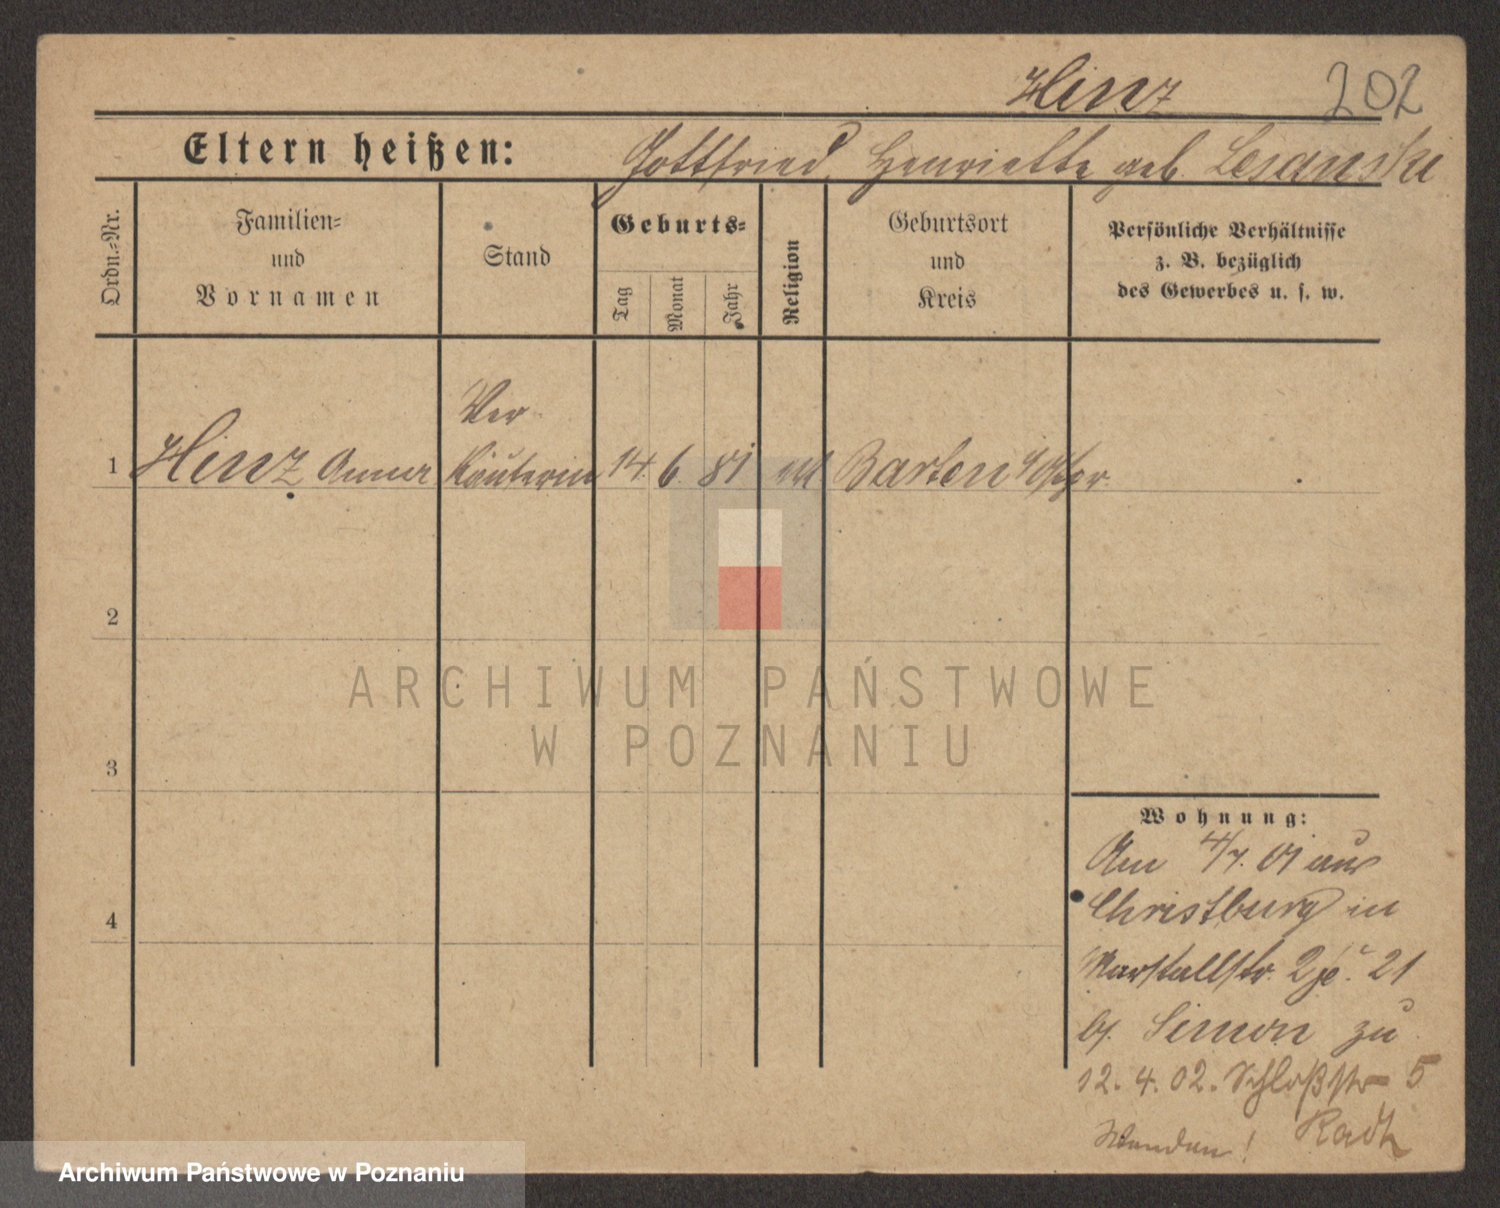 Hinz 202
Eltern heißen: Gottfried, Henriette geb. Lesanski
Ordn.-Nr.
Familien-
und
Vornamen
Stand
Geburts-
Tag
Monat
Jahr
Religion
Geburtsort
und
Kreis
Persönliche Verhältnisse
z. B. bezüglich
des Gewerbes u. s. w.
Ver
1 Hinz Anna käuferin 14. 6. 81 Barten Ostpr.
2
3
4
ARCHIWUM PAŃSTWOWE
W POZNANIU
Wohnung:
Am 4/7. 01 aus
Christburg in
Marstallstr. 21
b. Simon zu
12. 4. 02. Schloßstr 5
Wenden!
Archiwum Państwowe w Poznaniu